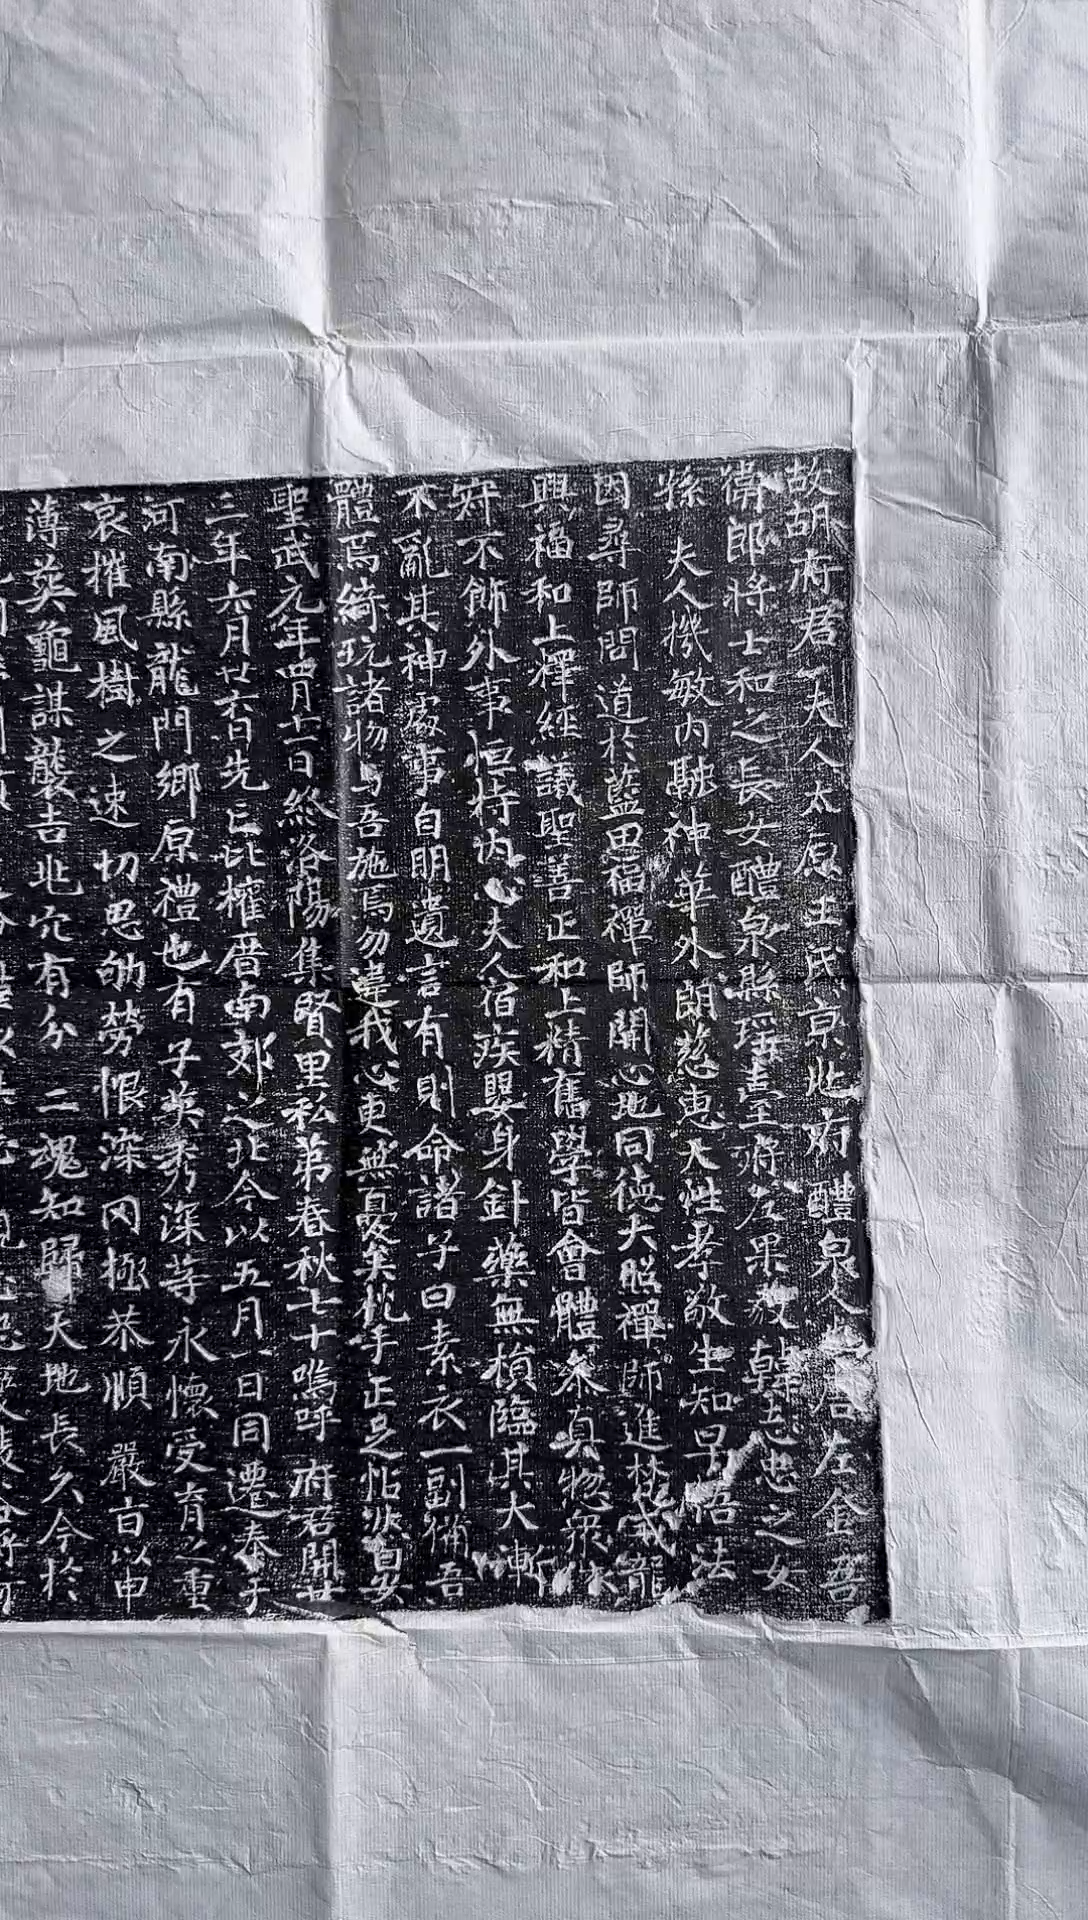 故胡府君夫人太原王氏京兆府醴泉人也唐左金吾
衛郎將士和之長女醴泉縣瑤臺府左果毅韓志忠之女
孫 夫人機敏內馳神華外朗慈惠大性孝敬生知早悟法
因尋師問道於藍田福禪師開心地同德大照禪師進梵戒龍
興福和上釋經議聖善正和上精舊學皆會體叅真惣衆妙
府不飾外事恒持內心夫人宿疾嬰身針藥無損臨其大漸
不亂其神處事自明遺言有則命諸子曰素衣一副俻吾
體焉綺玩諸物与吾施焉勿違我心吏無憂矣枕手正足怗然自安
聖武元年四月十一日終洛陽集賢里私弟春秋七十嗚呼 府君開廿
二年六月廿六日先亡比權厝南郊之北今以五月一日同遷奉于
河南縣龍門鄉原禮也有子英秀深等永懷受育之重
哀摧風樹之速切思劬勞恨深罔極恭順 嚴旨以申
薄葬龜謀襲吉兆宂有分 二魂知歸天地長久今於